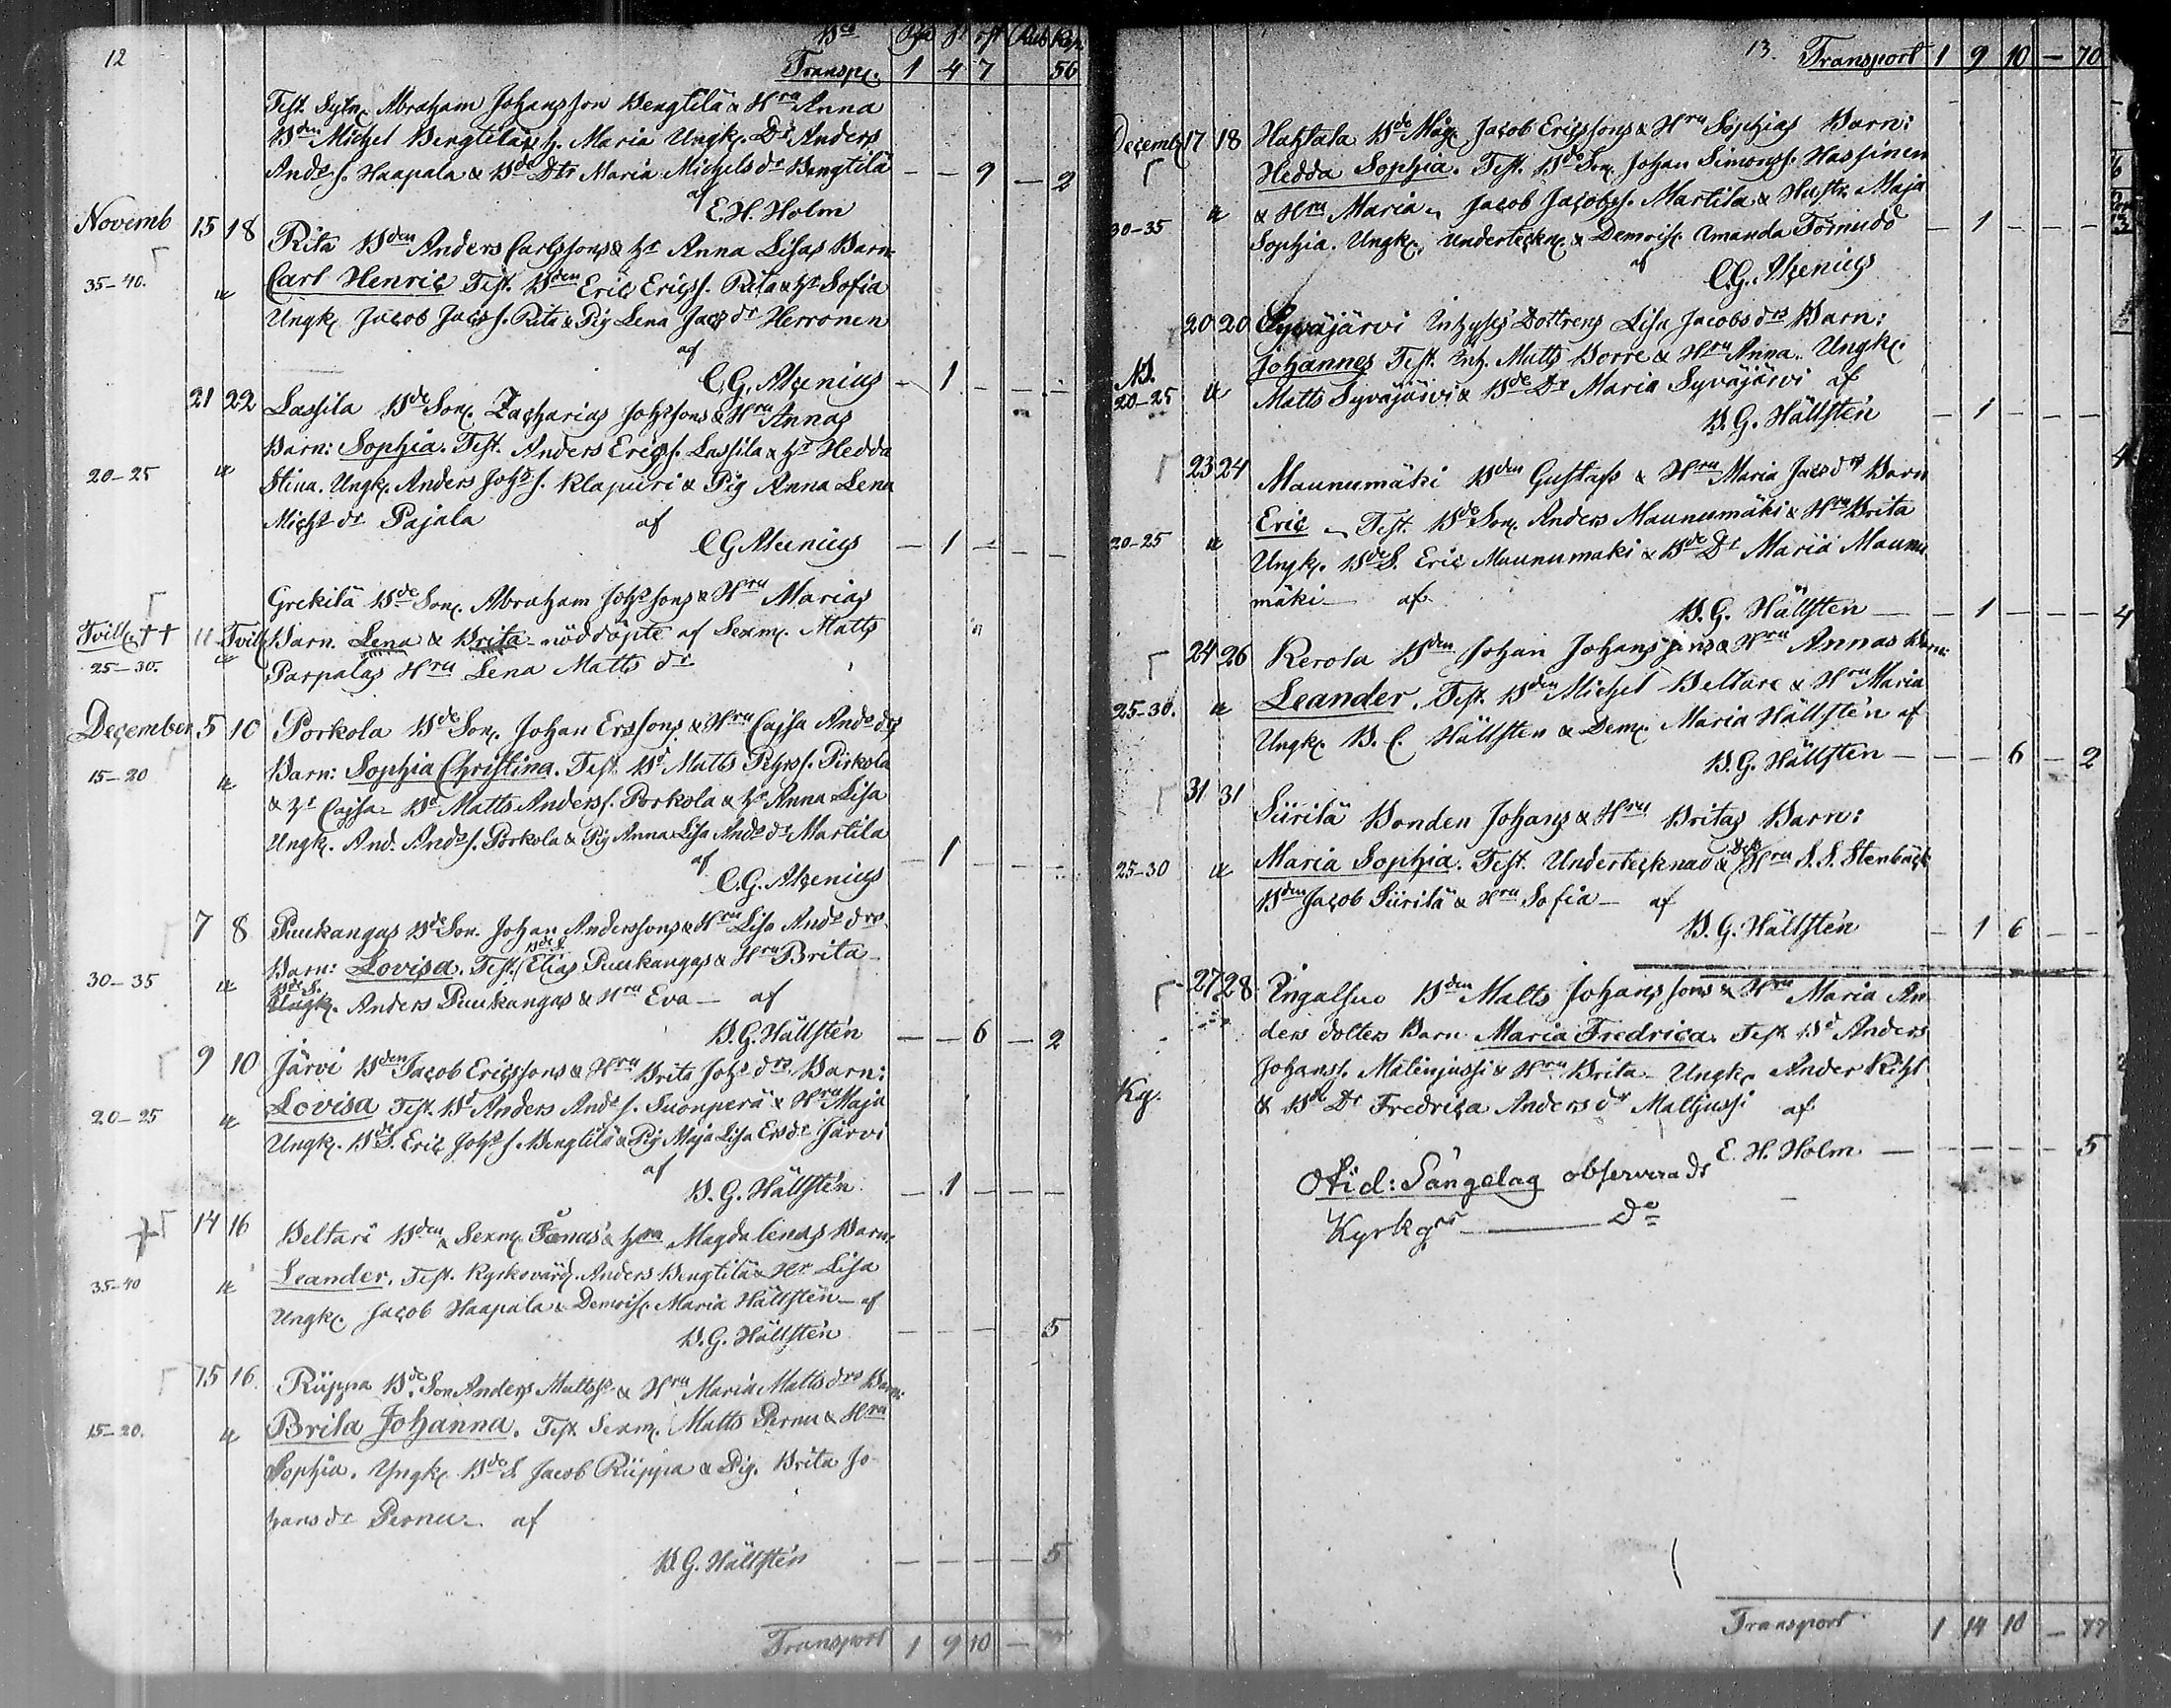 12
Transp. 1 4 7 56
Test. Sytn. Abraham Johansson Bengtilä & Hru Anna
Bden Michel Bengtiläs h. Maria Ungk. Dr Anders
Ands s. Haapala & Bde Dtr Maria Michels dr Bengtilä — — 9 — 2
af
E. H. Holm
Novemb 15 18 Rita Bden Anders Carlssons & hr Anna Lisas Barn:
35–40. u Carl Henric Test. Bden Eric Ericss. Rita & hr Sofia
Ungk. Jacob Jacs s. Rita & Pig Lena Jacs dr Herronen
af
C. G. Alcenius — 1 — — —
21 22 Lassila Bde Son. Zacharias Johssons & Hru Annas
Barn: Sophia. Test. Anders Ericss. Lassila & hr Hedda
20–25 u Stina. Ungk. Anders Johs s. Klapuri & Pig Anna Lena
Michs dr Pajala af
C G Alcenius — 1 — — —
Grekilä Bde Son. Abraham Johssons & Hru Marias
Tvill. †† 11 Tvill Barn. Lena & Brita nöddöpte af Sexm. Matts
25–30. u Parpalas Hru Lena Matts dr
December 5 10 Porkola Bde Son. Johan Erssons & Hru Cajsa Ands drs
15–20 u Barn: Sophia Christina. Test. Bd Matts Pehrss. Pirkola
& hr Cajsa — Bd Matts Anderss. Porkola & hr Anna Lisa
Ungk. And. Ands s. Porkola & Pig Anna Lisa Ands dr Martila
af — 1 — — —
C. G. Alcenius
7 8 Puukangas Bde Son. Johan Anderssons & Hru Lisa Ands drs
Bde S.
Barn: Lovisa. Test. Elias Puukangas & Hru Brita —
30–35 u Bde S.
Ungk. Anders Puukangas & Hru Eva — af
B. G. Hällstén — — 6 — 2
9 10 Järvi Bden Jacob Ericssons & Hru Brita Johs drs Barn:
20–25 u Lovisa Test. Bd Anders Ands s. Suonperä & Hru Maja
Ungk. Bde S. Eric Johs s. Bengtilä & Pig Maja Lisa Ers dr Järvi
af
B. G. Hällstén — 1 — — —
† 14 16 Beltari Bden & Sexm. Jonas & hru Magdalenas Barn:
35–40 u Leander. Test. Kyrkovärd. Anders Bengtilä & Hr Lisa
Ungk. Jacob Haapala & Demois. Maria Hällstén — af
B. G. Hällstén — — — 5
15 16 Riippa Bde Son Anders Mattss. & Hru Maria Matts drs Barn:
15–20. u Brita Johanna. Test Sexm. Matts Pernu & Hru
Sophia. Ungk. Bde S. Jacob Riippa & Pig. Brita Jo-
hans dr Pernu — af
B. G. Hällstén — — — — 5
Transport 1 9 10 —
13. Transport 1 9 10 — 70
Decemb 17 18 Hahtala Bde Måg. Jacob Ericssons & Hru Sophias Barn:
Hedda Sophia. Test. Bde Son. Johan Simonss. Hassinen
30–35 u & Hru Maria Jacob Jacobss. Martila & Hustr. Maja
Sophia. Ungk. underteckn. & Demois. Amanda Törnudd — 1 — — —
af
C. G. Alcenius
20 20 Syväjärvi Inhyses Dottrens Lisa Jacobs drs Barn:
Johannes Test. Inh. Matts Borre & Hru Anna. Ungk.
20–25 u Matts Syväjärvi & Bde Dr Maria Syväjärvi af
B. G. Hällstén — 1 — — —
23 24 Maunumäki Bden Gustafs & Hru Maria Jacs drs Barn
Eric Test. Bde Son. Anders Maunumäki & Hru Brita
20–25 u Ungk. Bde S. Eric Maunumaki & Bde Dr Maria Maunu
mäki — af
B. G. Hällsten — 1 — — —
24 26 Kerola Bden Johan Johanssons & Hru Annas Barn:
25–30. u Leander. Test. Bden Michel Beltare & Hru Maria
Ungk. B. C. Hällsten & Dem. Maria Hällstén af
B. G. Hällsten — — 6 — 2
31 31 Siirilä Bonden Johans & Hru Britas Barn:
25–30 u Maria Sophia. Test. Undertecknad & Hru S. S. Stenbäck
Bden Jacob Siirilä & Hru Sofia — af
B. G. Hällstén — 1 6 — —
27 28 Ingalsuo Bden Matts Johanssons & Hru Maria An
ders dotters Barn Maria Fredrica. Test Bd Anders
Johanss. Mälinjussi & Hru Brita — Ungk. Ander Riht
Kg. & Bde Dr Fredrica Anders dr Maltjussi af
E. H. Holm — — — — 5
Otid: Sängelag observerads
Kyrkgrs — Do
Transport 1 14 10 — 77